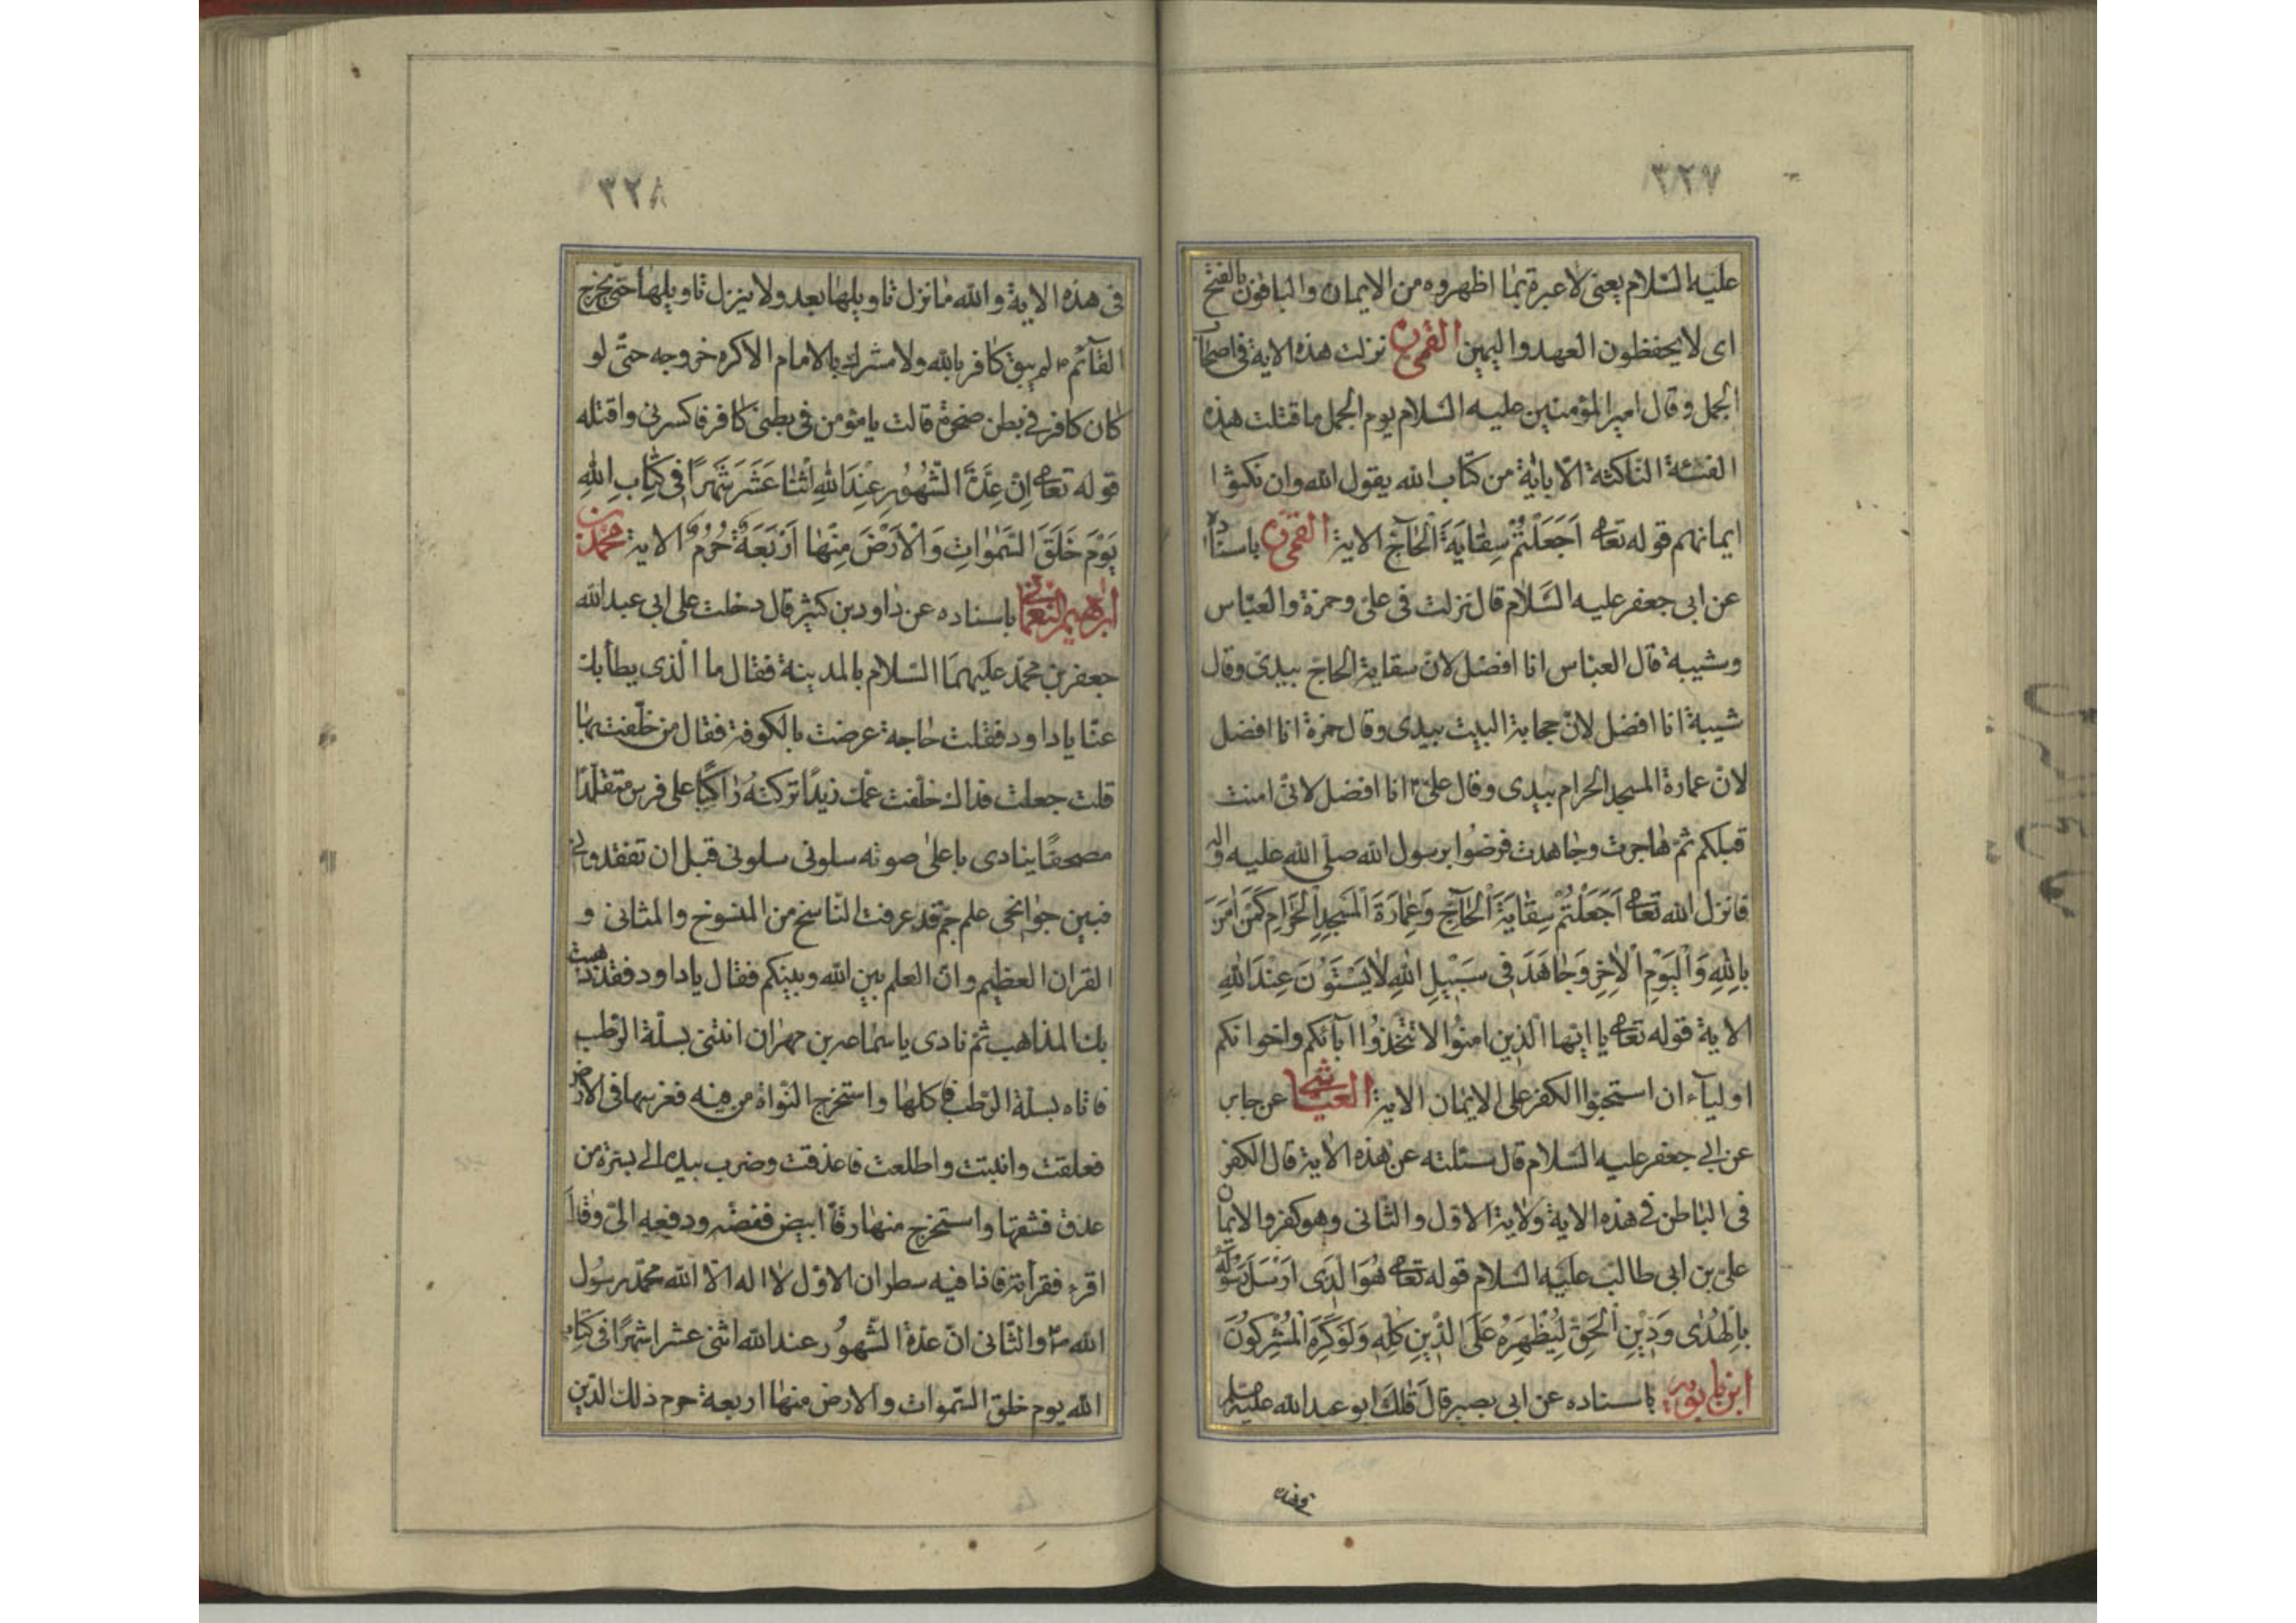 ٣٢٧
عليه السّلام يعنى لا عبرة بما اظهروه من الايمان والباقون بالفتح
اى لا يحفظون العهد واليمين القمى ره نزلت هذه الاية فى اصحا
الجمل وقال امير المؤمنين عليه السّلام يوم الجمل ما قتلت هذه
الفئة الناكثة الّا باية من كتاب الله يقول الله وان نكثوا
ايمانهم قوله تعا اَجَعَلْتُمْ سِقٰايَةَ الْحٰاجِّ الاية القمى ره باسناد
عن ابى جعفر عليه السَّلام قال نزلت فى علىّ وحمزة والعبّاس
وشيبة قال العبّاس انا افضل لانّ سقاية الحاجّ بيدى وقال
شيبة انا افضل لانّ حجابة البيت بيدى وقال حمزة انا افضل
لانّ عمارة المسجد الحرام بيدى وقال علىّ ع انا افضل لانّى امنت
قبلكم ثمّ هاجرت وجاهدت فرضوا برسول الله صلّى الله عليه واله
فانزل الله تعا اَجَعَلْتُمْ سِقٰايَةَ الْحٰاجِّ وَعِمٰارَةَ الْمَسْجِدِ الْحَرٰامِ كَمَنْ اٰمَنَ
بِاللهِ وَالْيَوْمِ الْاٰخِرِ وَجٰاهَدَ فِى سَبِيْلِ اللهِ لٰا يَسْتَوُنَ عِنْدَ اللهِ
الاية قوله تعا يا ايّها الّذين امنوا لا تتّخذوا ابائكم واخوانكم
اولياء ان استحبّوا الكفر على الايمان الاية العياشى عن جابر
عن ابى جعفر عليه السّلام قال سئلته عن هذه الاية قال الكفر
فى الباطن فى هذه الاية ولاية الاوّل والثّانى وهو كفر والايمان
علىّ بن ابى طالب عليه السّلام قوله تعا هُوَ الَّذِى اَرْسَلَ رَسُوْلَهُ
بِالْهُدٰى وَدِيْنِ الْحَقِّ لِيُظْهِرَهُ عَلَى الدِّيْنِ كُلِّهِ وَلَوْ كَرِهَ الْمُشْرِكُوْنَ
ابن بابويه باسناده عن ابى بصير قال قال ابو عبد الله عليه السلم
٣٢٨
فى هذه الاية والله ما نزل تاويلها بعد ولا ينزل تاويلها حتّى يخرج
القآئم ع لم يبق كافر بالله ولا مشرك بالامام الا كره خروجه حتّى لو
كان كافر فى بطن صخرة قالت يا مؤمن فى بطنى كافر فاكسرنى واقتله
قوله تعا اِنَّ عِدَّةَ الشُّهُوْرِ عِنْدَ اللهِ اثْنٰا عَشَرَ شَهْرًا فِى كِتٰابِ اللهِ
يَوْمَ خَلَقَ السَّمٰوٰاتِ وَالْاَرْضَ مِنْهٰا اَرْبَعَةٌ حُرُمٌ الاية محمّد بن
ابراهيم النعمانى باسناده عن داود بن كثير قال دخلت على ابى عبد الله
جعفر بن محمّد عليهما السّلام بالمدينة فقال ما الّذى بطأ بك
عنّا يا داود فقلت حاجة عرضت بالكوفة فقال من خلّفت بها
قلت جعلت فداك خلّفت عمّك زيدًا تركته رٰاكبًا على فرس متقلّدًا
مصحفًا ينادى باعلى صوته سلونى سلونى قبل ان تفقدونى
فبين جوانحى علم جمّ قد عرفت النّاسخ من المنسوخ والمثانى و
القران العظيم وانّ العلم بين الله وبينكم فقال يا داود فقد ذهبت
بك المذاهب ثمّ نادى يا سماعة بن مهران ائتنى بسلّة الرّطب
فاتاه بسلّة الرّطب فاكلها واستخرج النّواة من فيه فغرسها فى الارض
فعلقت وانبتت واطلعت فاعذقت وضرب بيده الى بسرة من
عذق فشقّها واستخرج منها رقّاً ابيض ففضّه ودفعه الىّ وقال
اقرء فقرأته فاذا فيه سطران الاوّل لا اله الّا الله محمّد رسول
الله ص والثّانى انّ عدّة الشّهور عند الله اثنى عشر شهرًا فى كتاب
الله يوم خلق السّموات والارض منها اربعة حرم ذلك الدّين